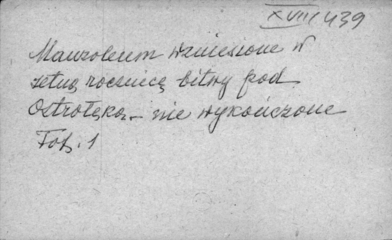 XVIII 439
Mauzoleum wzniesione w
setną rocznicę bitwy pod
Ostrołęką – nie wykończone
Fot. 1